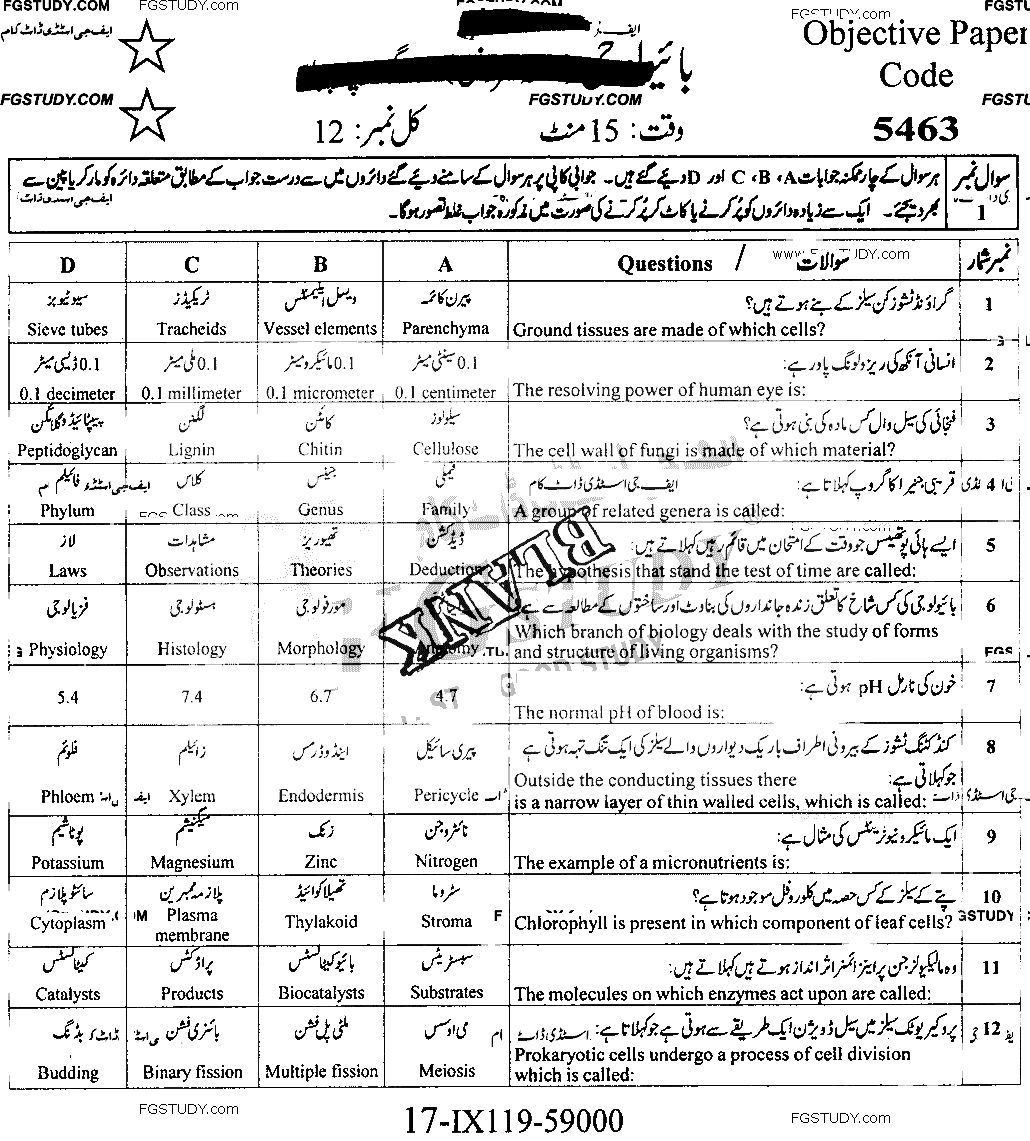 FGSTUDY.COM
FGSTUDY.COM
FGSTUDY.com
FGSTU
ایف جی اسٹڈی ڈاٹ کام
Objective Paper
Code
5463
FGSTUDY.COM
FGSTUDY.COM
FGSTU
وقت: 15 منٹ
کل نمبر: 12
سوال نمبر 1
ہر سوال کے چار ممکنہ جوابات A، B، C اور D دیئے گئے ہیں۔ جوابی کاپی پر ہر سوال کے سامنے دیئے گئے دائروں میں سے درست جواب کے مطابق متعلقہ دائرہ کو مارکر یا پین سے
بھر دیجئے۔ ایک سے زیادہ دائروں کو پُر کرنے یا کاٹ کر پُر کرنے کی صورت میں مذکورہ جواب غلط تصور ہوگا۔
D C B A Questions / سوالات نمبر شمار
سیو ٹیوبز ٹریکیڈز ویسل ایلیمنٹس پیرن کائمہ گراؤنڈ ٹشوز کن سیلز کے بنے ہوتے ہیں؟ 1
Sieve tubes Tracheids Vessel elements Parenchyma Ground tissues are made of which cells?
0.1 ڈیسی میٹر 0.1 ملی میٹر 0.1 مائیکرومیٹر 0.1 سینٹی میٹر انسانی آنکھ کی ریزولونگ پاور ہے: 2
0.1 decimeter 0.1 millimeter 0.1 micrometer 0.1 centimeter The resolving power of human eye is:
پیپٹائیڈوگلائکن لگنن کائٹن سیلولوز فنجائی کی سیل وال کس مادہ کی بنی ہوتی ہے؟ 3
Peptidoglycan Lignin Chitin Cellulose The cell wall of fungi is made of which material?
فائیلم کلاس جینس فیملی قریبی جنیرا کا گروپ کہلاتا ہے: 4
Phylum Class Genus Family A group of related genera is called:
لاز مشاہدات تھیوریز ڈیڈکشن ایسے ہائی پوتھیسس جو وقت کے امتحان میں قائم رہیں کہلاتے ہیں: 5
Laws Observations Theories Deduction The hypothesis that stand the test of time are called:
فزیالوجی ہسٹولوجی مورفولوجی بائیولوجی کی کس شاخ کا تعلق زندہ جانداروں کی بناوٹ اور ساختوں کے مطالعہ سے ہے 6
Physiology Histology Morphology Which branch of biology deals with the study of forms
and structure of living organisms?
5.4 7.4 6.7 4.7 خون کی نارمل pH ہوتی ہے: 7
The normal pH of blood is:
فلوئم زائیلم اینڈوڈرمس پیری سائیکل کنڈکٹنگ ٹشوز کے بیرونی اطراف باریک دیواروں والے سیلز کی ایک تنگ تہہ ہوتی ہے 8
جو کہلاتی ہے: Outside the conducting tissues there
Phloem Xylem Endodermis Pericycle is a narrow layer of thin walled cells, which is called:
پوٹاشیم میگنیشیم زنک نائٹروجن ایک مائیکرونیوٹرینٹس کی مثال ہے: 9
Potassium Magnesium Zinc Nitrogen The example of a micronutrients is:
سائٹوپلازم پلازمہ ممبرین تھیلاکوائیڈ سٹروما پتے کے سیلز کے کس حصہ میں کلوروفل موجود ہوتا ہے؟ 10
Cytoplasm Plasma membrane Thylakoid Stroma Chlorophyll is present in which component of leaf cells?
کیٹالسٹس پراڈکٹس بائیوکیٹالسٹس سبسٹریٹس وہ مالیکیولز جن پر اینزائمز اثر انداز ہوتے ہیں کہلاتے ہیں: 11
Catalysts Products Biocatalysts Substrates The molecules on which enzymes act upon are called:
بڈنگ بائنری فشن ملٹی پل فشن می اوسس پروکیریوٹک سیلز میں سیل ڈویژن ایک طریقے سے ہوتی ہے جو کہلاتا ہے: 12
Prokaryotic cells undergo a process of cell division
Budding Binary fission Multiple fission Meiosis which is called:
BLANK
FGSTUDY.com
17-IX119-59000
FGSTUDY.com